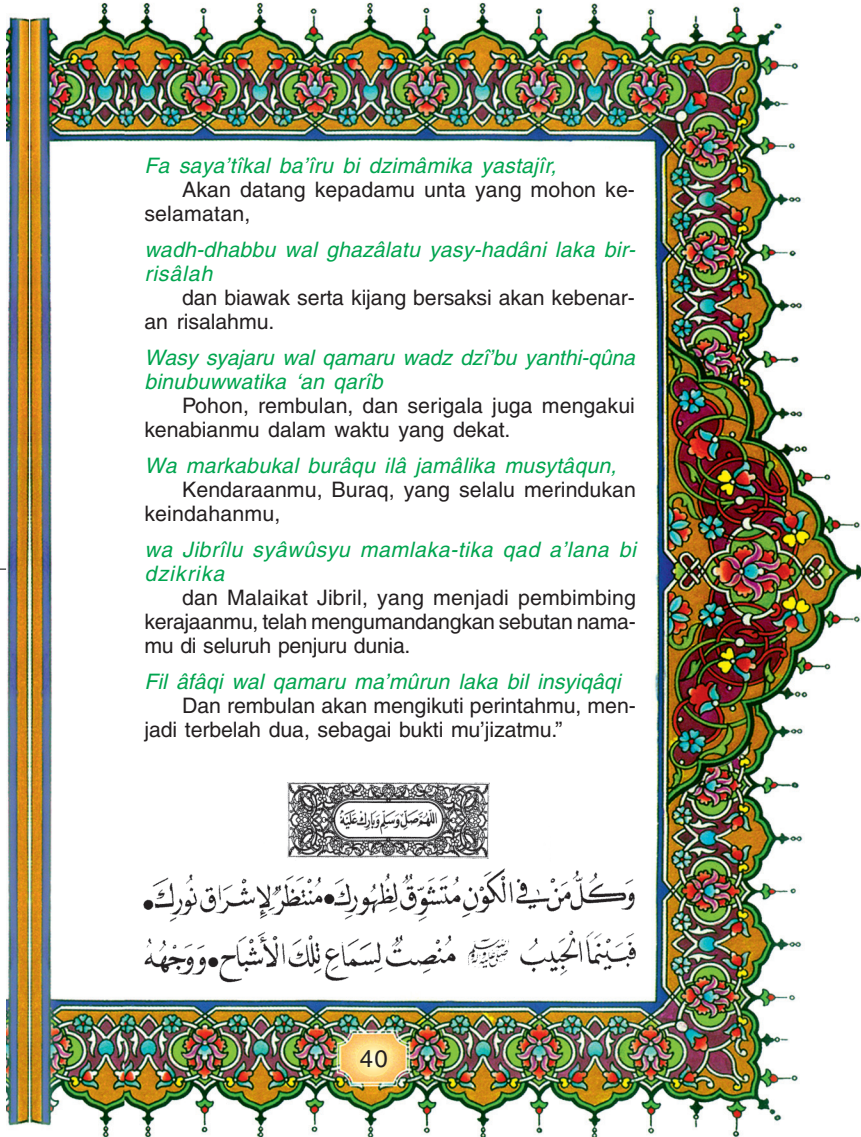 Fa saya’tîkal ba’îru bi dzimâmika yastajîr,
Akan datang kepadamu unta yang mohon ke-
selamatan,
wadh-dhabbu wal ghazâlatu yasy-hadâni laka bir-
risâlah
dan biawak serta kijang bersaksi akan kebenar-
an risalahmu.
Wasy syajaru wal qamaru wadz dzî’bu yanthi-qûna
binubuwwatika ‘an qarîb
Pohon, rembulan, dan serigala juga mengakui
kenabianmu dalam waktu yang dekat.
Wa markabukal burâqu ilâ jamâlika musytâqun,
Kendaraanmu, Buraq, yang selalu merindukan
keindahanmu,
wa Jibrîlu syâwûsyu mamlaka-tika qad a’lana bi
dzikrika
dan Malaikat Jibril, yang menjadi pembimbing
kerajaanmu, telah mengumandangkan sebutan nama-
mu di seluruh penjuru dunia.
Fil âfâqi wal qamaru ma’mûrun laka bil insyiqâqi
Dan rembulan akan mengikuti perintahmu, men-
jadi terbelah dua, sebagai bukti mu’jizatmu.”
اللّٰهُمَّ صَلِّ وَسَلِّمْ وَبَارِكْ عَلَيْهِ
وَكُلُّ مَنْ فِي الْكَوْنِ مُتَشَوِّقٌ لِظُهُورِكَ • مُنْتَظِرٌ لِإِشْرَاقِ نُورِكَ •
فَبَيْنَمَا الْحَبِيبُ ﷺ مُنْصِتٌ لِسَمَاعِ تِلْكَ الْأَشْبَاحِ • وَوَجْهُهُ
40